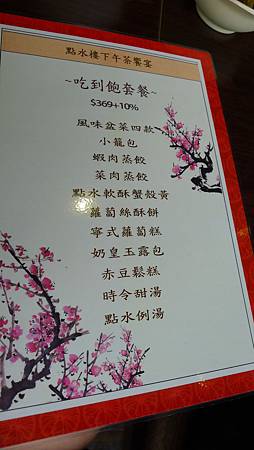 點水樓下午茶饗宴
~吃到飽套餐~
$369+10%
風味盆菜四款
小籠包
蝦肉蒸餃
菜肉蒸餃
點水軟酥蟹殼黃
蘿蔔絲酥餅
寧式蘿蔔糕
奶皇玉露包
赤豆鬆糕
時令甜湯
點水例湯